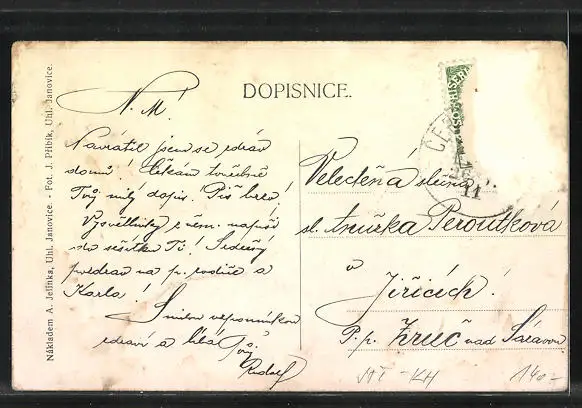 Nákladem A. Jelínka, Uhl. Janovice. - Fot. J. Přibík, Uhl. Janovice.
DOPISNICE.
N. M.!
Navrátil jsem se zdráv
domů! Čekám toužebně
Tvůj milý dopis. Piš brzo!
Vysvětlivky k něm. napíši
do sešitku Ti! Srdečný
pozdrav na p. rodiče a
Karla!
S milou vzpomínkou
zdraví a líbá
Tvůj
Rudolf
ČE
11
Velectěná slečna
sl. Anežka Peroutková
v
Jiřicích!
P. p. Zruč nad Sázavou
KH
140-